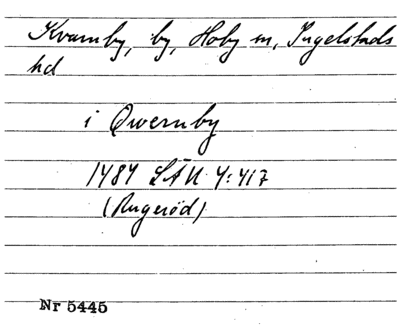 Kvarnby, by, Hoby sn, Ingelstads
hd
i Qwernby
1484 LÄU 4:417
(Rugeröd)
Nr 5445